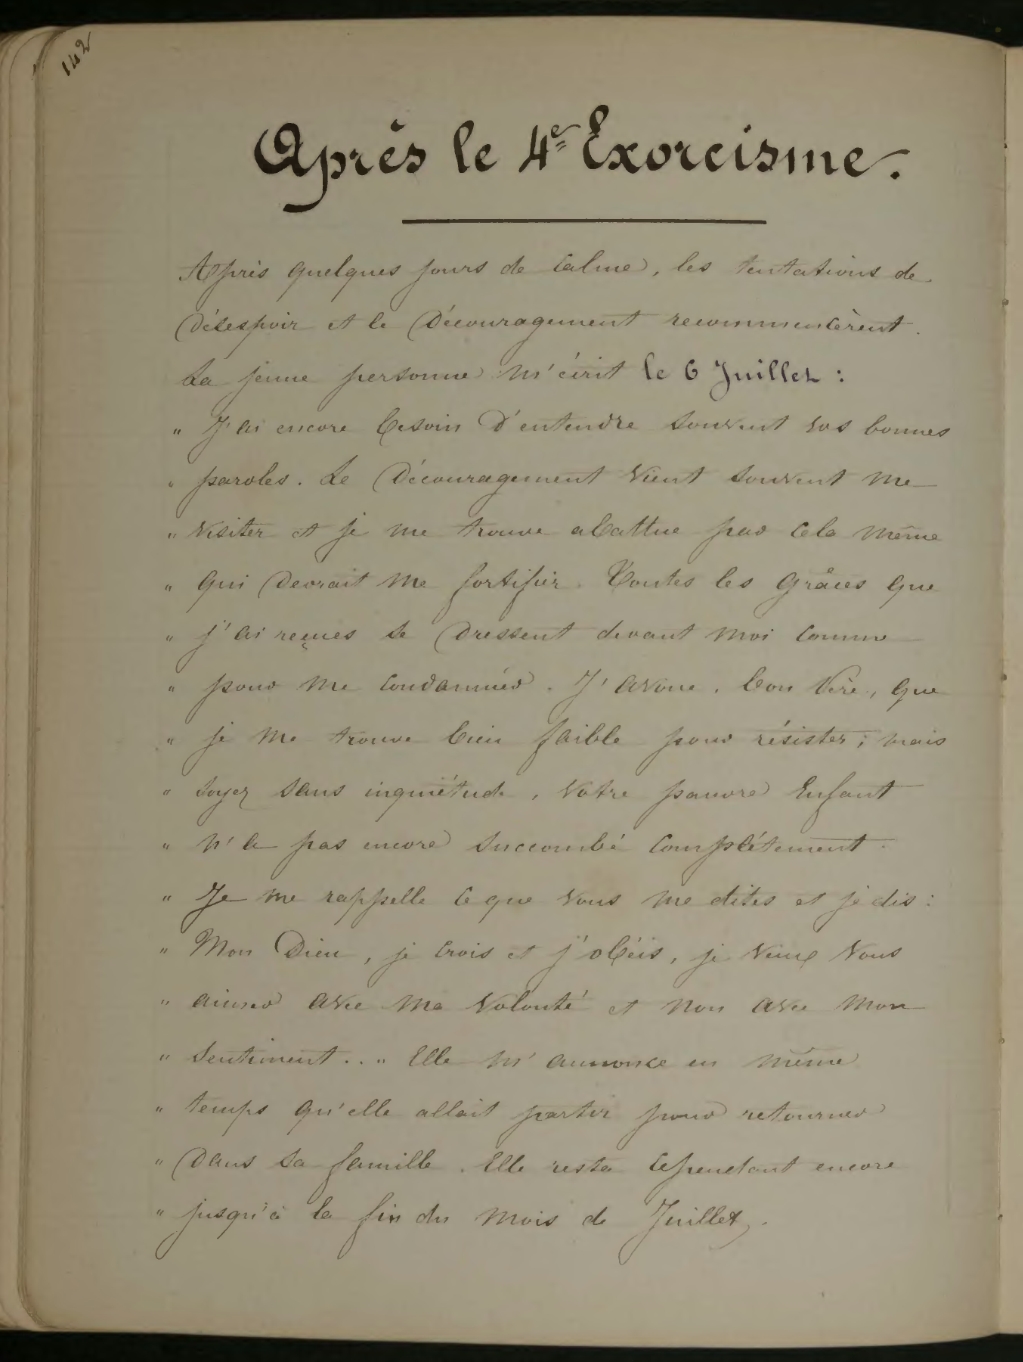 142
Après le 4e Exorcisme.
Après quelques jours de calme, les tentations de
Désespoir et le Découragement recommencèrent.
La jeune personne m'écrit le 6 Juillet :
" J'ai encore besoin D'entendre souvent vos bonnes
" paroles. Le Découragement vient souvent me
" visiter et je me trouve abattue par cela même
" qui devrait me fortifier. Toutes les grâces que
" j'ai reçues se Dressent devant moi comme
" pour me condamner. J'avoue, bon Père, que
" je me trouve bien faible pour résister ; mais
" soyez sans inquiétude, votre pauvre Enfant
" n'a pas encore succombé complétement.
" Je me rappelle ce que vous me dites et je dis :
" Mon Dieu, je crois et j'obéis, je veux vous
" aimer avec ma volonté et non avec mon
" sentiment.. " Elle m'annonce en même
" temps qu'elle allait partir pour retourner
" Dans sa famille. Elle resta cependant encore
" jusqu'à la fin du mois de Juillet.